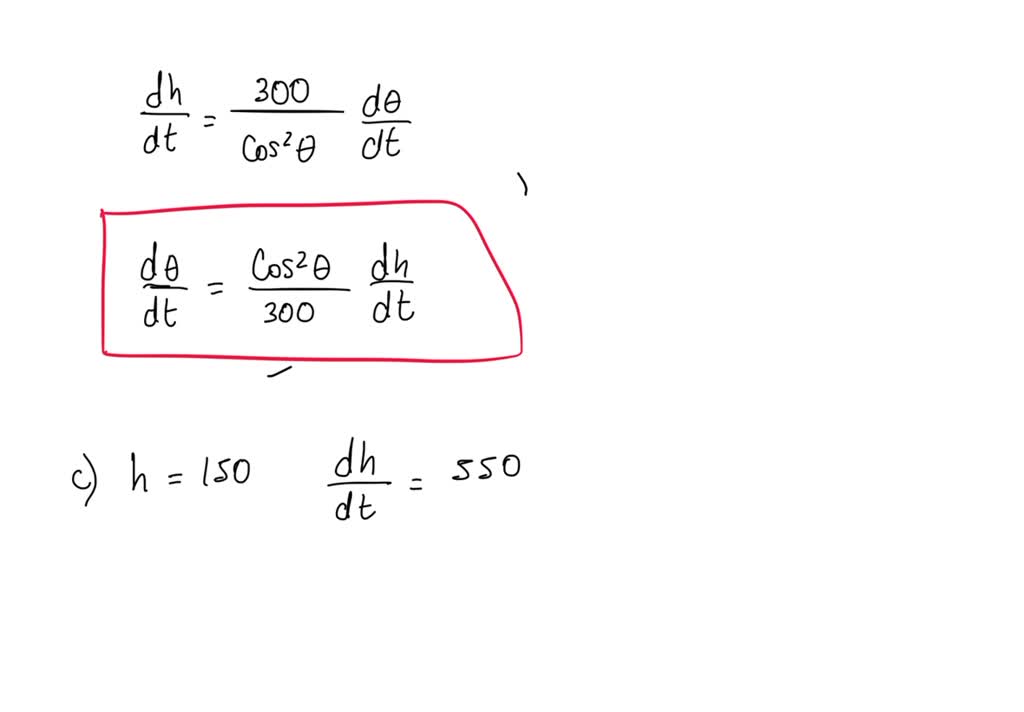 dh/dt = 300/Cos²θ dθ/dt
dθ/dt = Cos²θ/300 dh/dt
c) h = 150 dh/dt = 550